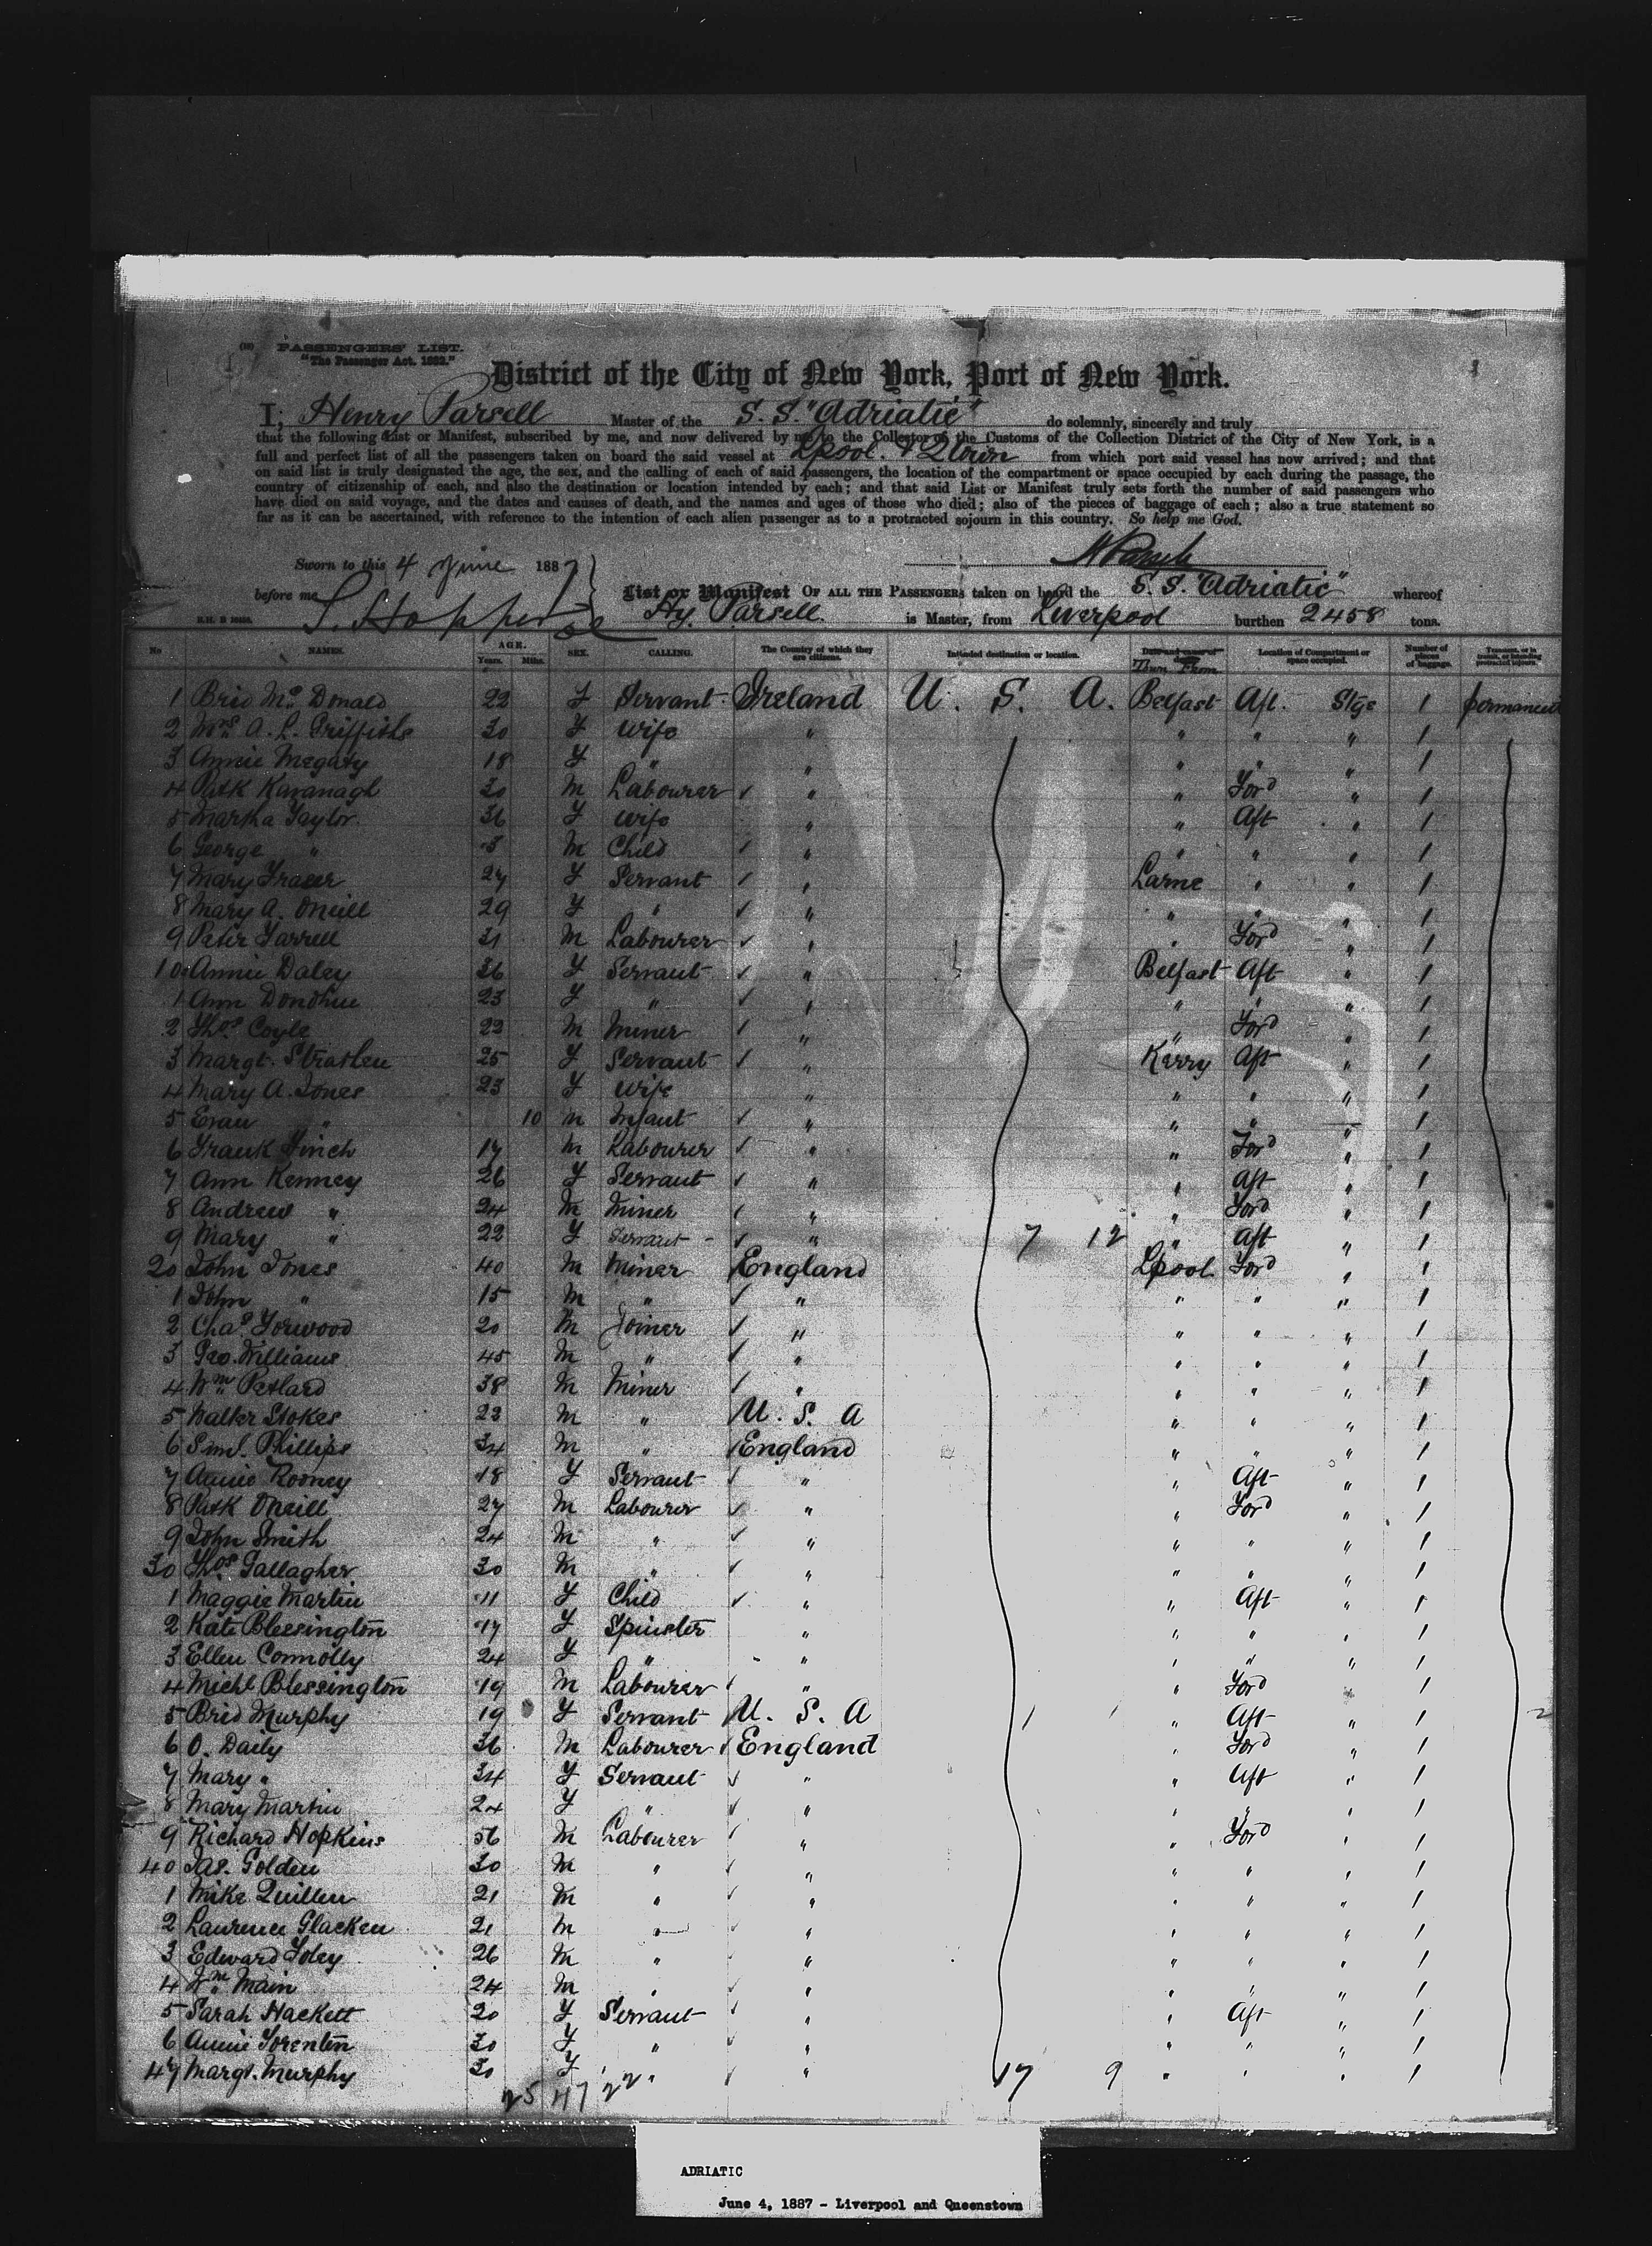 (12) PASSENGERS' LIST.
"The Passenger Act. 1882."
District of the City of New York, Port of New York.
I, Henry Parsell Master of the S.S. "Adriatic" do solemnly, sincerely and truly
that the following List or Manifest, subscribed by me, and now delivered by me to the Collector of the Customs of the Collection District of the City of New York, is a
full and perfect list of all the passengers taken on board the said vessel at Lpool. & Qtown from which port said vessel has now arrived; and that
on said list is truly designated the age, the sex, and the calling of each of said passengers, the location of the compartment or space occupied by each during the passage, the
country of citizenship of each, and also the destination or location intended by each; and that said List or Manifest truly sets forth the number of said passengers who
have died on said voyage, and the dates and causes of death, and the names and ages of those who died; also of the pieces of baggage of each; also a true statement so
far as it can be ascertained, with reference to the intention of each alien passenger as to a protracted sojourn in this country. So help me God.
Sworn to this 4 June 1887 H Parsell
before me List or Manifest OF ALL THE PASSENGERS taken on board the S.S. "Adriatic" whereof
Hy. Parsell is Master, from Liverpool burthen 2458 tons.
No NAMES. AGE. Years. Mths. SEX. CALLING. The Country of which they are citizens. Intended destination or location. From Location of Compartment or space occupied. Number of pieces of baggage. Transient, or in transit, or intending protracted sojourn.
1 Brid McDonald 22 F Servant Ireland U. S. A. Belfast Aft. Stge 1 permanent
2 Mrs A. L. Griffiths 30 F Wife " " " " 1
3 Annie Megaty 18 F " " " " " 1
4 Patk Kavanagh 30 M Labourer " " Ford " 1
5 Martha Taylor 36 F Wife " " Aft " 1
6 George " 3 M Child " " " " 1
7 Mary Fraser 27 F Servant " Larne " " 1
8 Mary A. ONeill 29 F " " " " " 1
9 Peter Farrell 31 M Labourer " " Ford " 1
10 Annie Daley 36 F Servant " Belfast Aft " 1
1 Ann Donohue 23 F " " " " " 1
2 Thos Coyle 22 M Miner " " Ford " 1
3 Margt. 25 F Servant " Kerry Aft " 1
4 Mary A. Jones 23 F Wife " " " " 1
5 Evan " 10 M Infant " " " " 1
6 Frank Finch 17 M Labourer " " Ford " 1
7 Ann Kenney 26 F Servant " " Aft " 1
8 Andrew " 24 M Miner " " Ford " 1
9 Mary " 22 F Servant " 7 12 " Aft " 1
20 John Jones 40 M Miner England Lpool Ford " 1
1 John " 15 M " " " " " 1
2 Chas Yorwood 20 M Joiner " " " " 1
3 Geo. Williams 45 M " " " " " 1
4 Wm Petlard 38 M Miner " " " " 1
5 Walter Stokes 22 M " U. S. A " " " 1
6 Saml. Phillips 34 M " England " " " 1
7 Annie Rooney 18 F Servant " " Aft " 1
8 Patk ONeill 27 M Labourer " " Ford " 1
9 John Smith 24 M " " " " " 1
30 Thos Gallagher 30 M " " " " " 1
1 Maggie Martin 11 F Child " " Aft " 1
2 Kate Blessington 17 F Spinster " " " " 1
3 Ellen Connolly 24 F " " " " " 1
4 Michl Blessington 19 M Labourer " " Ford " 1
5 Brid Murphy 19 F Servant U. S. A 1 1 " Aft " 1 2
6 O. Daily 36 M Labourer England " Ford " 1
7 Mary " 34 F Servant " " Aft " 1
8 Mary Martin 24 F " " " " " 1
9 Richard Hopkins 56 M Labourer " " Ford " 1
40 Jas. Golden 30 M " " " " " 1
1 Mike Quillen 21 M " " " " " 1
2 Laurence Glacken 21 M " " " " " 1
3 Edward Foley 26 M " " " " " 1
4 Wm Main 24 M " " " " " 1
5 Sarah Hackett 20 F Servant " " Aft " 1
6 Annie Torenton 30 F " " " " " 1
47 Margt. Murphy 30 F " " 17 9 " " " 1
25 47 22
ADRIATIC
June 4, 1887 - Liverpool and Queenstown